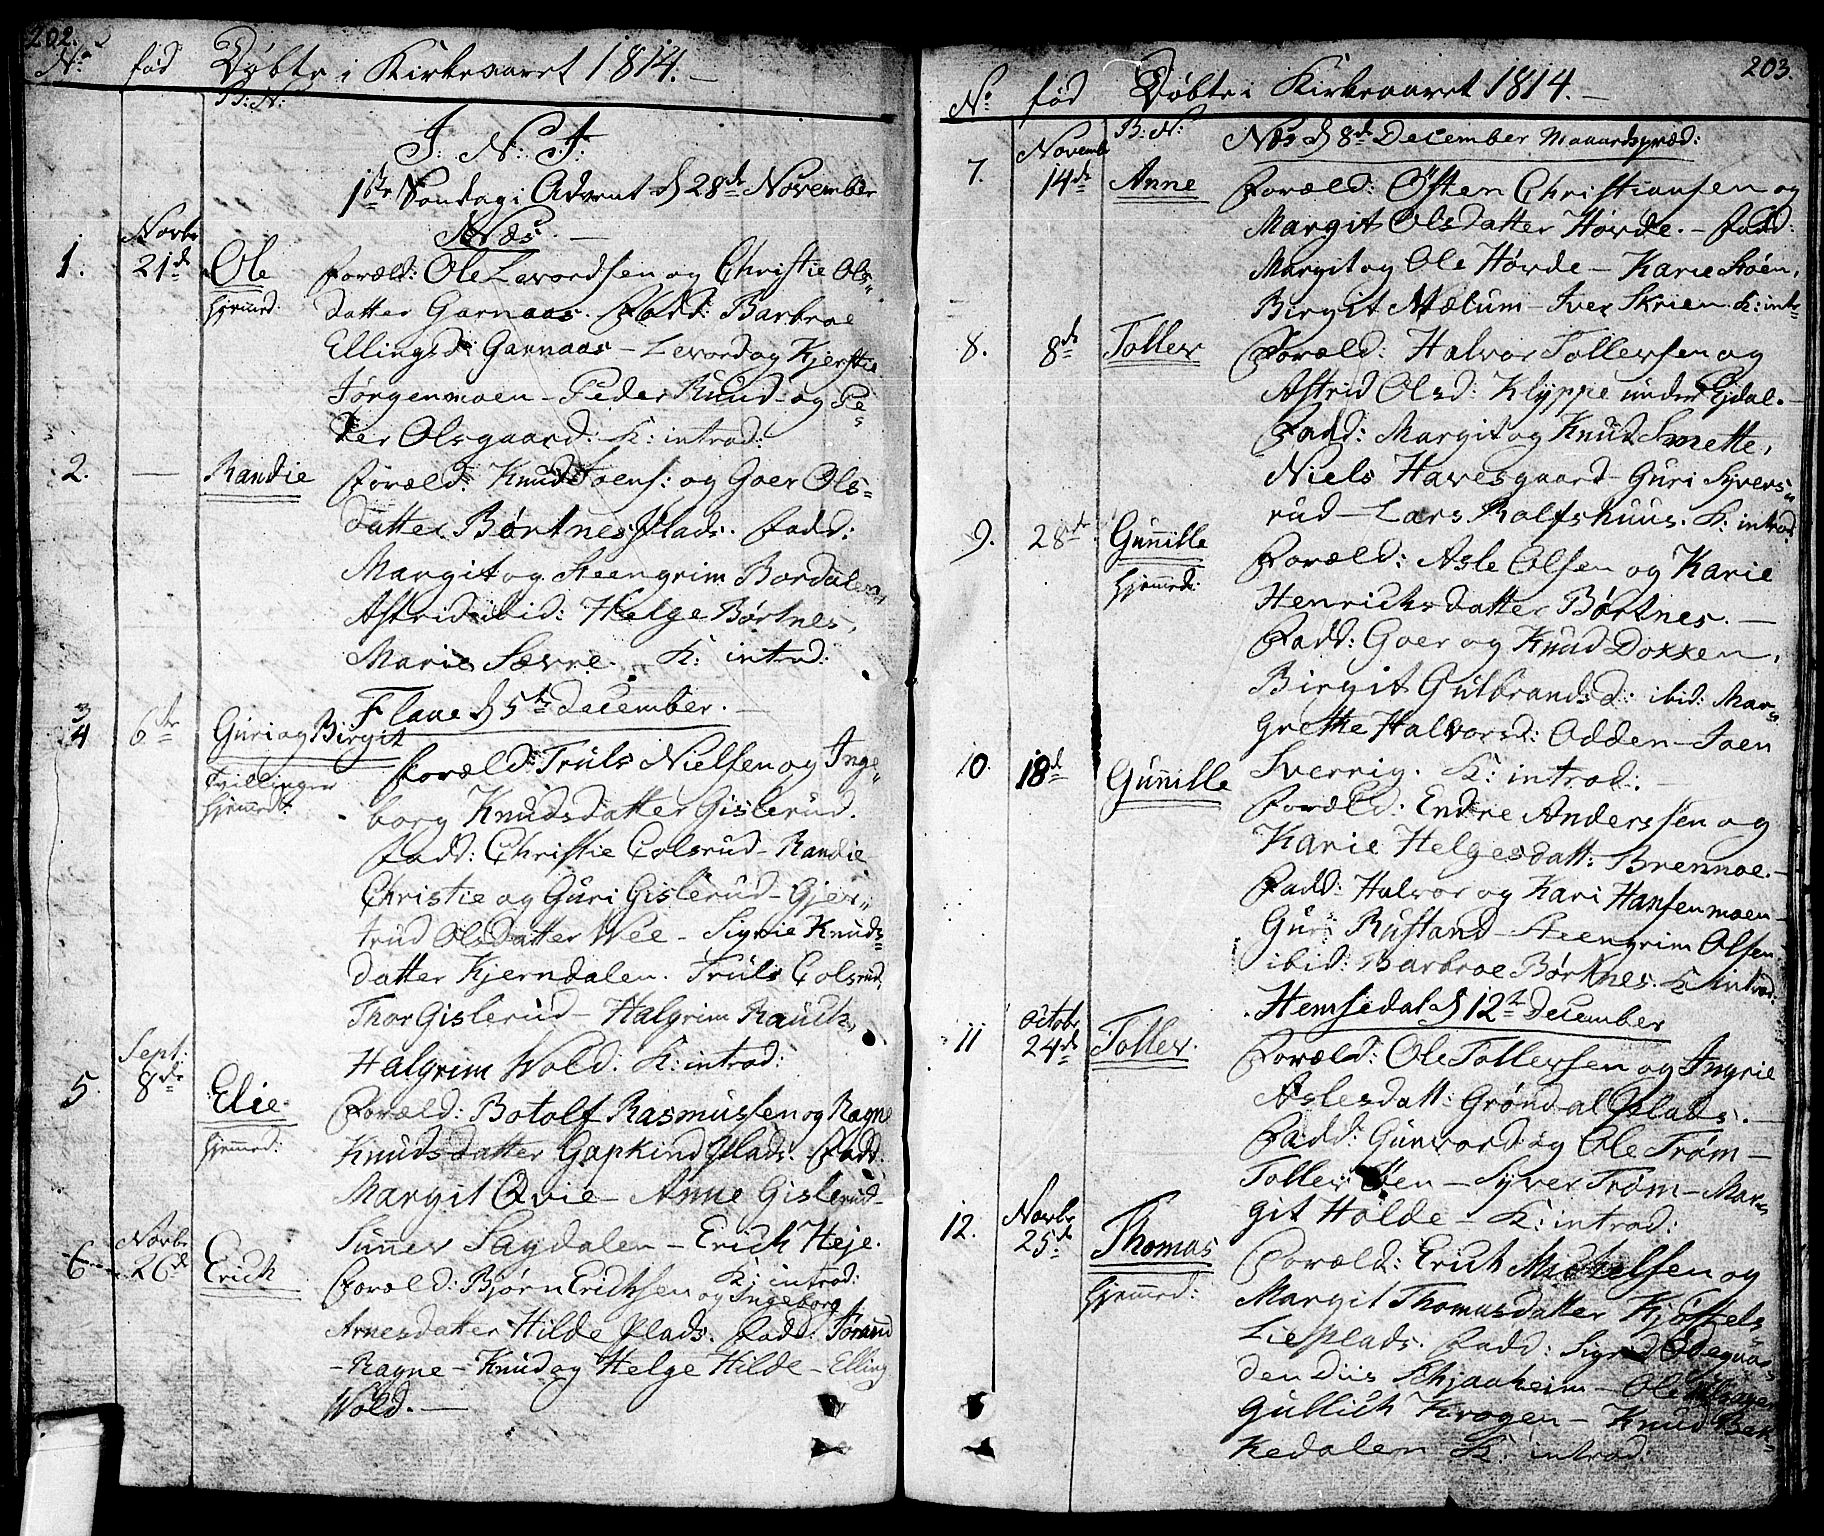 202.
No. fød Døbte i Kirkeaaret 1814. —
B: N:
J: N: J:
1ste Søndag i Advent d 28de November
Næs. —
1. Novbr 21de Ole Foræld: Ole Levordsen og Christie Ols-
hjemed: datter Garnaas. Fadd: Barbroe
Ellingsd: Garnaas – Levord og Kjerstie
Jørgenmoen – Peder Ruud – og Pe-
der Olsgaard: K: introd:
2. — Randie Foræld: Knud Joens: og Goer Ols-
datter Børtnes Plads. Fadd:
Margit og Steengrim Bordalen
Astrid ibid: Helge Børtnes,
Marie Sævre. K: introd:
Flaae d 5te December. —
3
4 6de Guri og Birgit
Foræld: Truls Nielsen og Inge-
Tvillinger
hjemed: borg Knudsdatter Gislerud.
Fadd: Christie Colsrud – Randie
Christie og Guri Gislerud – Gjer-
trud Olsdatter Wee – Sigrie Knuds-
datter Kjerndalen. Truls Colsrud,
Thor Gislerud – Halgrim Rauck,
Halgrim Wold. K: introd:
5. Sept: 8de Elie. Foræld: Botolf Rasmussen og Ragne
hjemed: Knudsdatter Gapkind Plads. Fadd:
Margit Qvie – Anne Gislerud –
Suner Sagdalen – Erich Heje.
K: introd:
6 Novbr 26de Erich Foræld: Bjørn Erichsen og Ingeborg
Arnesdatter Hilde Plads. Fadd: Jørand
– Ragne – Knud og Helge Hilde – Elling
Wold. —
203.
No. fød Døbte i Kirkeaaret 1814. —
B: N:
Næs d 8de December Maanedspræd:
7. Novembr 14de Anne Foræld: Østen Christiansen og
Margit Olsdatter Hovde. – Fadd:
Margit og Ole Hovde – Karie Stoen,
Birgit Mælum – Iver Skrien. K: intr
8. 8de Tollev Foræld: Halvor Tollevsen og
Astrid Olsd: Klyppe under Ejdal. –
Fadd: Margit og Knud Smette,
Niels Havesgaard – Guri Syvers-
rud – Lars Rolfshuus. K: introd
9. 28de Gunille Foræld: Asle Olsen og Karie
hjemed: Henrichsdatter Børtnes. —
Fadd: Goer og Knud Dokken,
Birgit Gulbrandsd: ibid: Mar-
grethe Halvorsd: Odden – Joen
Sverrig. K: introd:
10. 18de Gunille Foræld: Endre Anderssen og
Karie Helgesdatt: Brennoe. –
Fadd: Halvor og Kari Hansenmoen –
Guri Rustand – Steengrim Olsen
ibid: Barbroe Børtnes. K introd:
Hemsedal d 12te December
11 Octobr 24de Tollev. Foræld: Ole Tollevsen og Ingrie
Aslesdatt: Grøndal Plads. —
Fadd: Gunvord og Ole Trøm –
Tollev Øen – Syver Trøm – Mar-
git Holde – K: introd:
12. Novbr 25de Thomas Foræld: Erich Mickelsen og
hjemed: Margit Thomasdatter Kjøstels-
Lieplads. Fadd: Sigrid Ødegaar-
den Dits Skjaaheim – Ole
Gullich Krogen – Knud Bek-
kedalen K: introd: